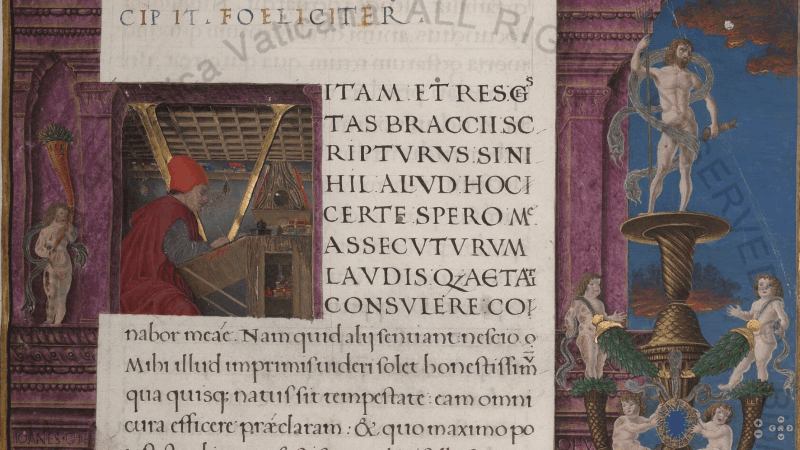 CIPIT. FOELICITER.
ITAM. ET RES GS
TAS BRACCII SC
RIPTVRVS SI NI
HIL ALIVD HOC I
CERTE SPERO ME
ASSECVTVRVM
LAVDIS. Q. AETATI
CONSVLERE. CO
nabor meae. Nam quid alij sentiant nescio.
Mihi illud imprimis uideri solet honestissimū
qua quisq; natus sit tempestate: eam omni
cura efficere praeclaram: & quo maximo po
IOANES